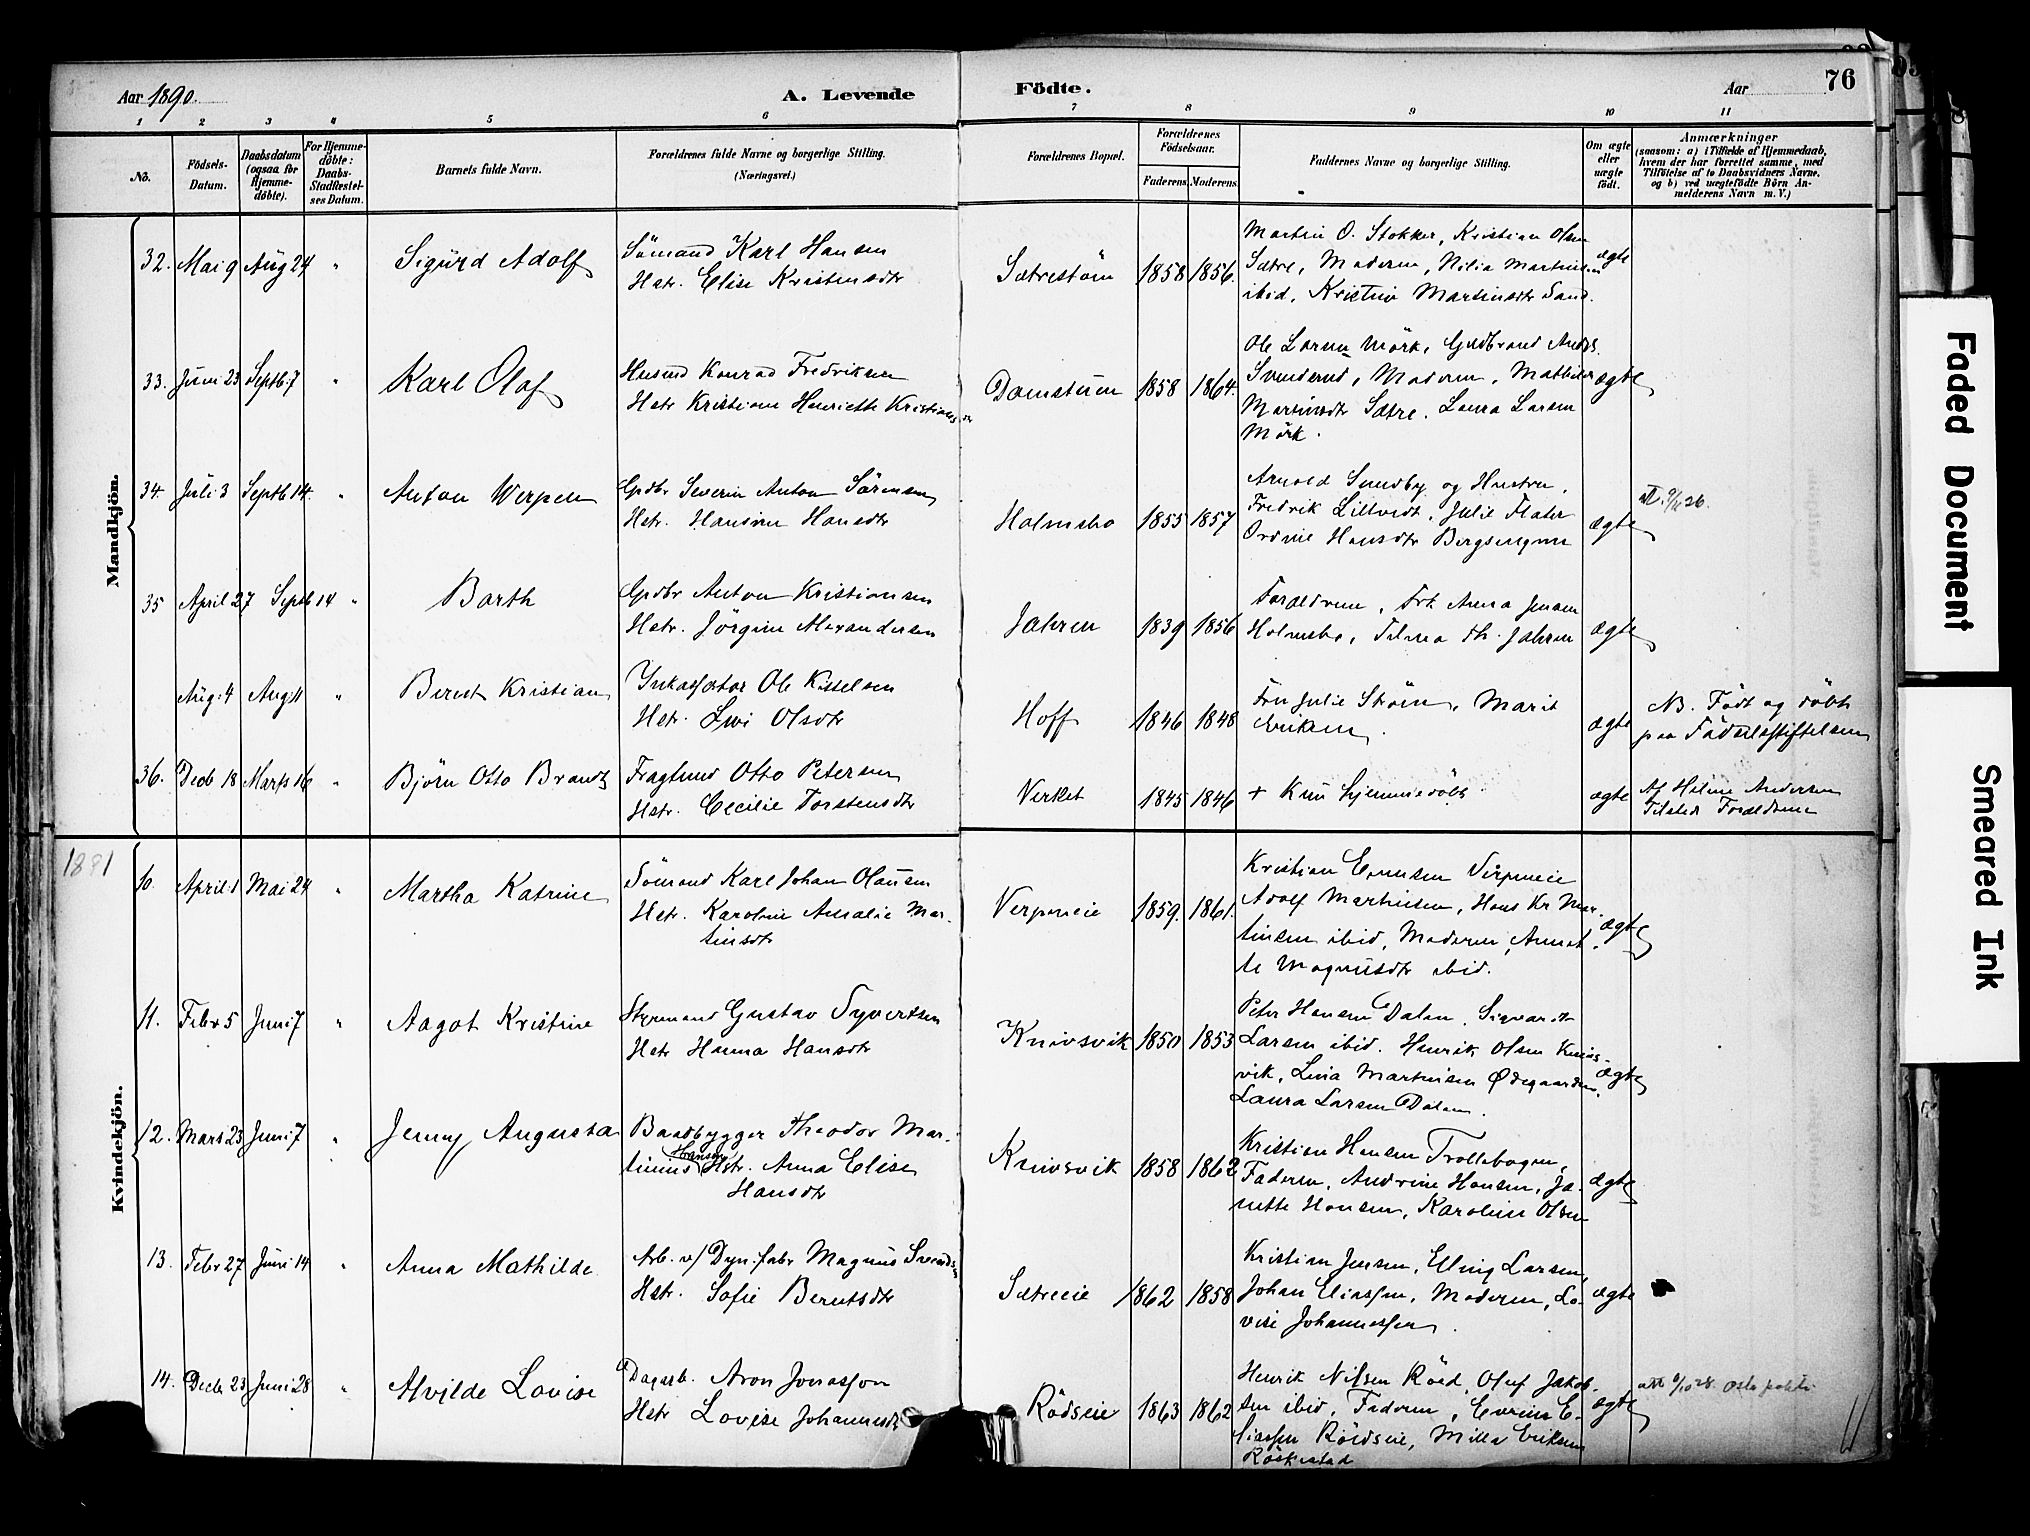 Aar 1890. A. Levende Födte. Aar 76
1 2 3 4 5 6 7 8 9 10 11
No.
Födsels-Datum.
Daabsdatum (ogsaa for Hjemme-døbte).
For Hjemme-døbte: Daabs-Stadfæstel-ses Datum.
Barnets fulde Navn.
Forældrenes fulde Navne og borgerlige Stilling.
(Næringsvei.)
Forældrenes Bopæl.
Forældrenes Födselsaar.
Faderens Moderens
Faddernes Navne og borgerlige Stilling.
Om ægte eller uægte født.
Anmærkninger
(saasom: a) i Tilfælde af Hjemmedaab,
hvem der har forrettet samme, med
Tilføielse af to Daabsvidners Navne.
og b) ved uægtefödte Börn An-
melderens Navn m. V.)
Mandkjön.
32. Mai 9 Aug 24 " Sigurd Adolf
Sömand Karl Hansen
Hstr. Elise Kristensdtr
Sætrestöm 1858 1856.
Martin O. Stokker, Kristian Olsen
Sætre, Moderen, Nilia Martinsen
ibid, Kristine Martinsdtr Sand.
ægte
33. Juni 23 Septb: 7 " Karl Olaf
Husmd Konrad Fredriksen
Hstr Kristiane Henriette Kristiansdtr
Damstuen 1858 1864.
Ole Larsen Mörk, Gudbrand Andrs.
Svenderud, Moderen, Mathilde
Martinsdtr Sætre. Laura Larsen
Mörk.
ægte
34. Juli 3 Septb 14. " Anton Werpen
Gdbr Severin Anton Sörensen
Hstr. Hansine Hansdtr
Holmsbo 1855 1857
Arnold Sundby og Hustru,
Fredrik Lilltvedt, Julie Flater
Ordine Hansdtr Bergsengen
ægte
35 April 27 Septb 14 " Barth
Gdbr Anton Kristiansen
Hstr. Jörgine Alexandersen
Jahren 1839 1856
Forældrene, Frk Anna Jensen
Holmsbo, Tilma Th. Jahren
ægte
Aug: 4 Aug: 11 " Berent Kristian
Inkassator Ole Kittelsen
Hstr. Livi Olsdtr
Hoff 1846 1848
Fru Julie Ström, Marit
Eriksen.
ægte
NB. Födt og döbt
paa Födselsstiftelsen
36. Decb 18 Marts 16 " Björn Otto Brandt
Fragtmd Otto Petersen
Hstr. Cecilie Torstensdtr
Verket 1845 1846
+ Kun hjemmedöbt
ægte
Af Helene Andersen
Tilstede Forældrene
1891
Kvindekjön.
10. April 1 Mai 24 " Martha Katrine
Sömand Karl Johan Olausen
Hstr. Karoline Amalie Mar-
tinsdtr
Verpeneie 1859. 1861.
Kristian Evensen Verpeneie
Adolf Martinsen, Hans Kr Mar-
tinsen ibid, Moderen, Annet-
te Magnusdtr ibid.
ægte
11. Febr 5 Juni 7 " Aagot Kristine
Styrmand Gustav Syvertsen
Hstr Hanna Hansdtr
Knivsvik 1850 1853
Peter Hansen Dalen, Sigvardt
Larsen ibid. Henrik Olsen Knivs-
vik, Lina Martinsen Ødegaarden,
Laura Larsen Dalen.
ægte
12. Marts 23 Juni 7 " Jenny Augusta
Baadbygger Theodor Mar-
tinius Hansen Hstr. Anna Elise
Hansdtr
Knivsvik 1858 1862
Kristian Hansen Trollebogen,
Faderen, Andrine Hansen, Ja-
nette Hansen, Karoline Olsen
ægte
13. Febr 27 Juni 14 " Anna Mathilde
Arb. v/ Dyn.fabr Magnus Svends.
Hstr. Sofie Berntsdtr
Sætreeie 1862 1858
Kristian Jensen, Elling Larsen,
Johan Eliassen, Moderen, Lo-
vise Johannessen.
ægte
14. Decbr 23 Juni 28 " Alvilde Lovise
Dagarb. Aron Jonasson
Hstr Lovise Johannesdtr
Rödseie 1863 1862
Henrik Nilsen Röed, Oluf Jakob-
sen ibid, Faderen, Evrine E-
liassen Röedseie, Milla Eriksen
Röskestad
ægte
Oslo politi
Faded Document
Smeared Ink